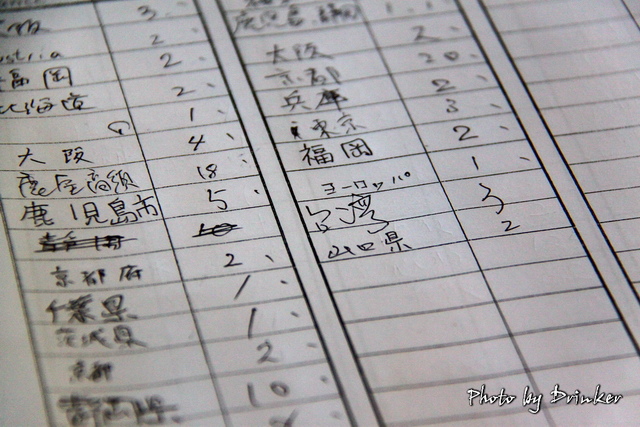 3
2
福岡 2
北海道 2
1
大阪 4
鹿屋高須 18
鹿児島市 5
京都府 2
千葉県 1
茨城県 1
京都 2
10
大阪 2
京都 20
兵庫 2
東京 3
福岡 2
ヨーロッパ 1
台湾 3
山口県 2
Photo by Drinker